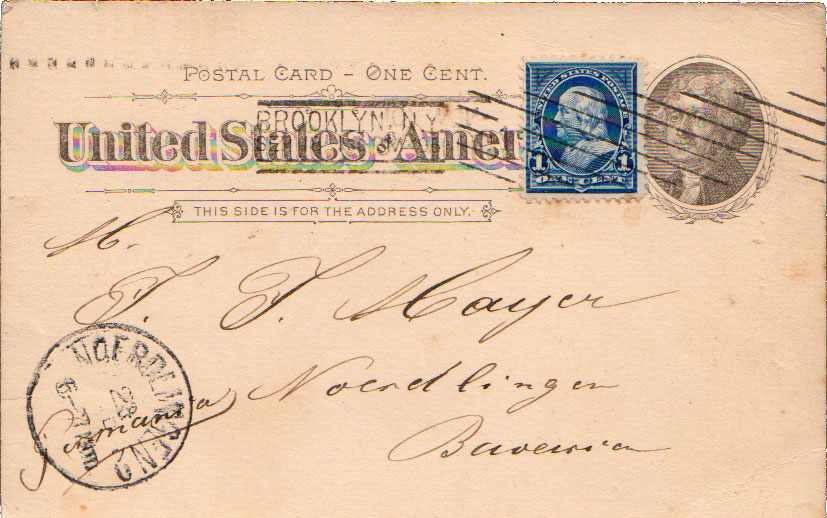 POSTAL CARD – ONE CENT.
BROOKLYN, N.Y.
United States Amer
UNITED STATES POSTAGE
1 1
ONE CENT
THIS SIDE IS FOR THE ADDRESS ONLY.
M.
J. J. Mayer
Noerdlingen
Bavaria
Germania
NOERDLINGEN
23
6–7